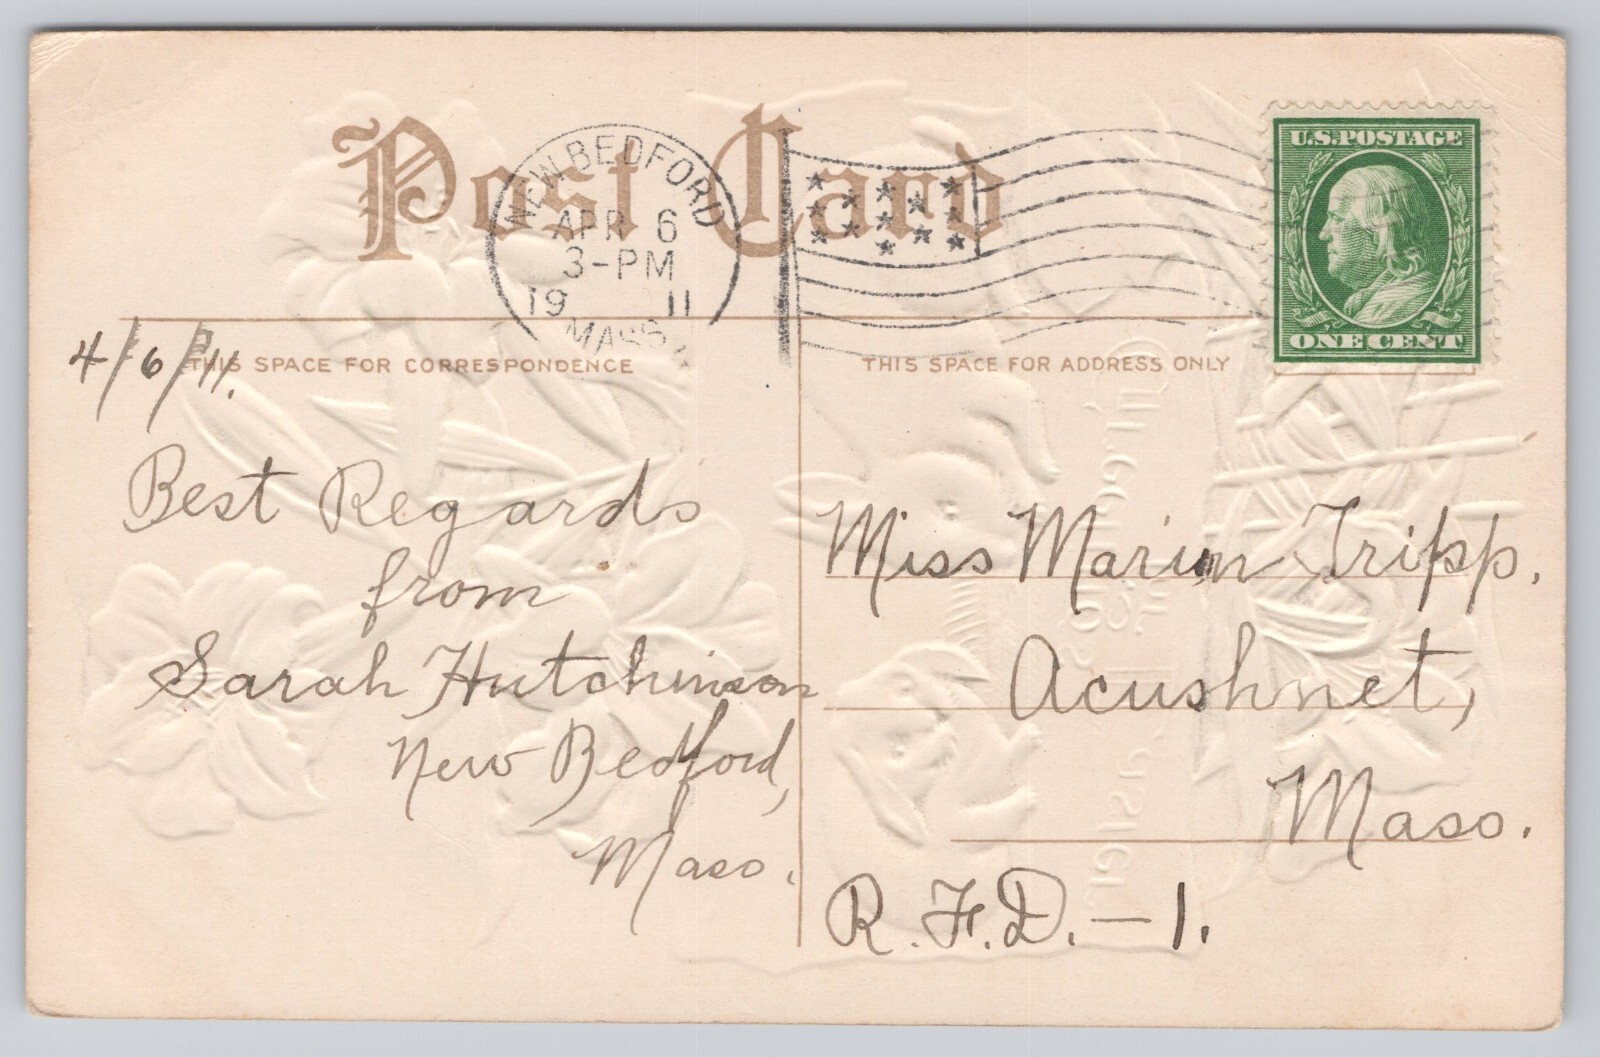 Post Card
NEW BEDFORD
APR 6
3-PM
19 11
MASS.
U.S. POSTAGE
ONE CENT
THIS SPACE FOR CORRESPONDENCE
4/6/11.
Best Regards
from
Sarah Hutchinson
New Bedford,
Mass.
THIS SPACE FOR ADDRESS ONLY
Miss Marion Tripp.
Acushnet,
Mass.
R.F.D. — 1.